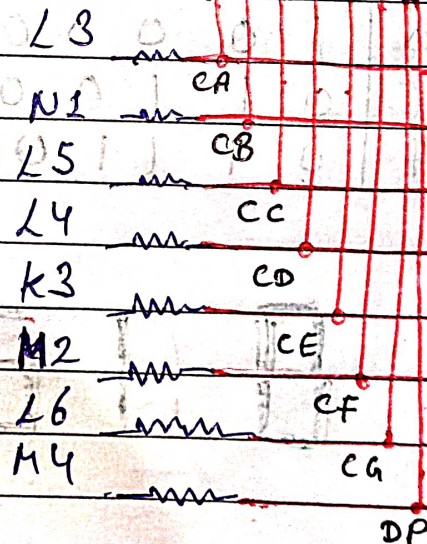 L3
CA
N1
CB
L5
CC
L4
CD
K3
CE
M2
CF
L6
CG
M4
DP